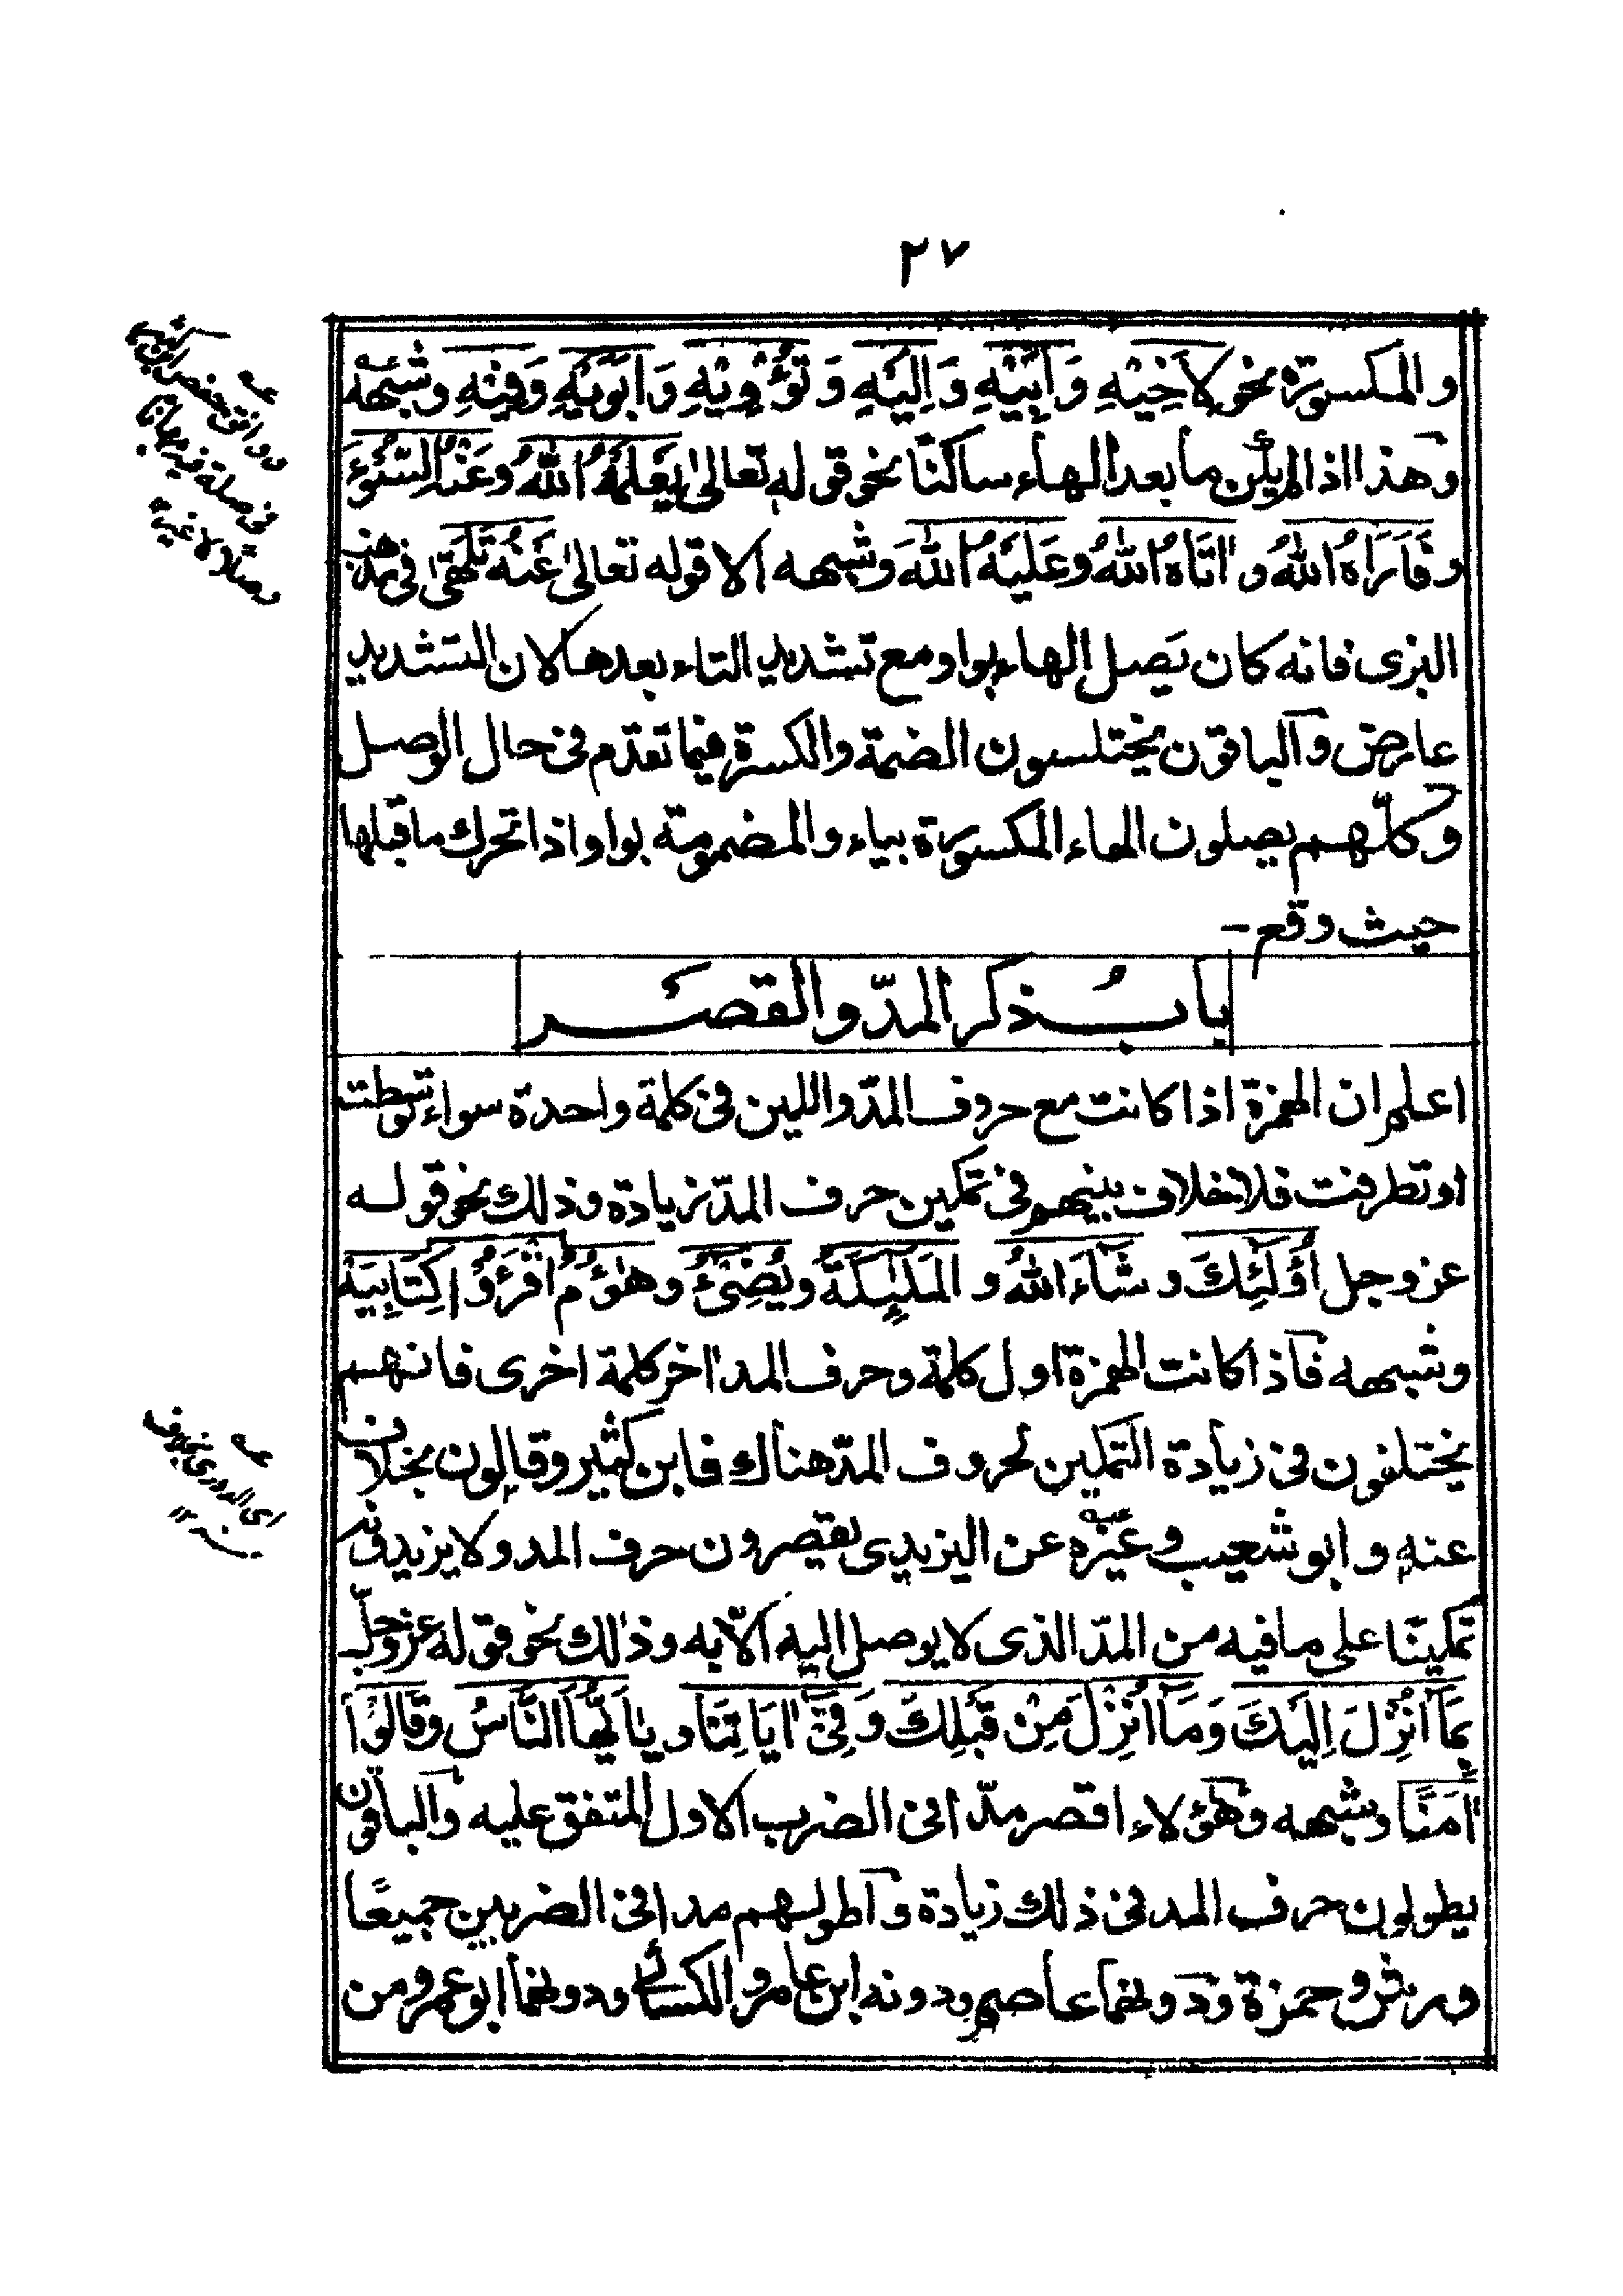 ٢٧
والمكسورة نحو لِاَخِيْهِ وَاَبِيْهِ وَاِلَيْهِ وَتُؤْوِيْهِ وَاَبَوَيْهِ وَفِيْهِ وشبهه
وهذا اذا لم يلق ما بعد الهاء ساكنًا نحو قوله تعالىٰ يَعْلَمْهُ اللّٰهُ وعَنْهُ السُّوْٓءَ
وفَاَرَاهُ اللّٰهُ و اٰتَاهُ اللّٰهُ وعَلَيْهُ اللّٰهَ وشبهه الا قوله تعالىٰ عَنْهُ تَلَهّٰى فى مذهب
البزى فانه كان يَصِل الهاء بواو مع تشديد التاء بعدها لان التشديد
عارض والباقون يختلسون الضمة والكسرة فيما تقدم فى حال الوصل
وكلّهم يصلون الهاء المكسورة بياء والمضمومة بواو اذا تحرك ما قبلها
حيث وقع -
بابُ ذكر المدّ والقصر
اعلم ان الهمزة اذا كانت مع حروف المدّ واللين فى كلمة واحدة سواء توسطت
او تطرفت فلا خلاف بينهم فى تمكين حرف المدّ زيادة وذلك نحو قوله
عزوجل اُولٰٓئِكَ و شَآءَ اللّٰهُ و المَلٰٓئِكَةُ ويُضِىْٓءُ وهَاؤُمُ اقْرَءُوْا كِتَابِيَهْ
وشبهه فاذا كانت الهمزة اول كلمة وحرف المد اٰخر كلمة اخرى فانهم
يختلفون فى زيادة التمكين لحروف المدّ هناك فابن كثير وقالون بخلاف
عنه وابو شعيب وغيره عن اليزيدى يقصرون حرف المد ولا يزيدونه
تمكينًا على ما فيه من المدّ الذى لا يوصل اليه الّا به وذٰلك نحو قوله عزوجل
بِمَآ اُنْزِلَ اِلَيْكَ وَمَآ اُنْزِلَ مِنْ قَبْلِكَ وَفِىْٓ اٰيَاتِنَا و يٰٓاَيُّهَا النَّاسُ وقَالُوْٓا
اٰمَنَّا وشبهه وهؤلاء اقصر مدّا فى الضرب الاول المتفق عليه والباقون
يطولون حرف المد فى ذلك زيادة واطولهم مدا فى الضربين جميعًا
ورش وحمزة ودونهما عاصم ودونه ابن عامر والكسائى ودونهما ابو عمرو من
عه
ووافق حفص ابن كثير
فى صلة فيه مهانا
عه
اى الدورى بخلاف